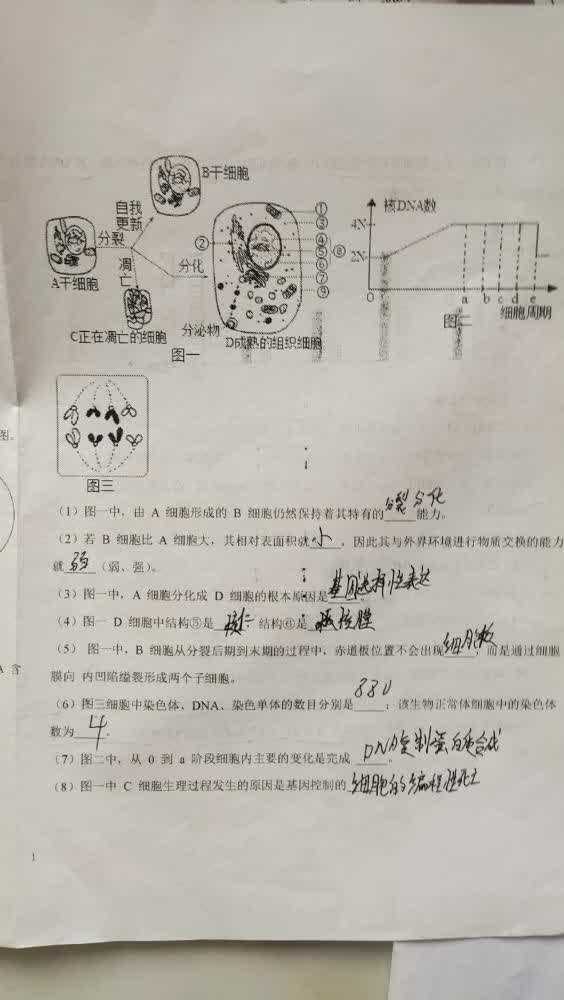 B干细胞
自我
更新
分裂
A干细胞
凋
亡
分化
C正在凋亡的细胞
分泌物
D成熟的组织细胞
图一
① ③ ④ ⑤ ⑥ ⑦ ⑨ ② ⑧
核DNA数
4N
2N
0 a b c d e
细胞周期
图二
图三
图。
(1)图一中,由 A 细胞形成的 B 细胞仍然保持着其特有的分裂分化能力。
(2)若 B 细胞比 A 细胞大,其相对表面积就小,因此其与外界环境进行物质交换的能力
就弱(弱、强)。
(3)图一中,A 细胞分化成 D 细胞的根本原因是基因选择性表达
(4)图一 D 细胞中结构⑤是核仁 结构⑥是核膜
(5) 图一中,B 细胞从分裂后期到末期的过程中,赤道板位置不会出现细胞板,而是通过细胞
膜向 内凹陷缢裂形成两个子细胞。
A 含
(6)图三细胞中染色体、DNA、染色单体的数目分别是880;该生物正常体细胞中的染色体
数为4。
(7)图二中,从 0 到 a 阶段细胞内主要的变化是完成 DNA复制蛋白质合成。
(8)图一中 C 细胞生理过程发生的原因是基因控制的细胞的编程性死亡
1